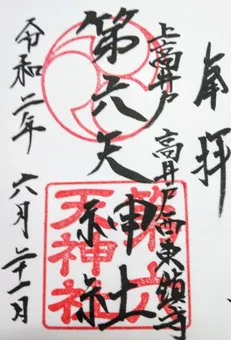 奉拝
上高井戸 高井戸西東鎮守
第六天神社
第六
天神社
令和二年 六月 二十一日